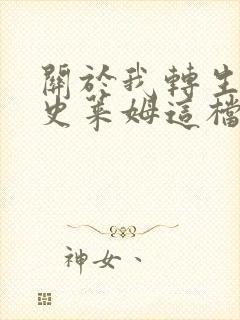 關於我轉生
史萊姆這檔
神女、